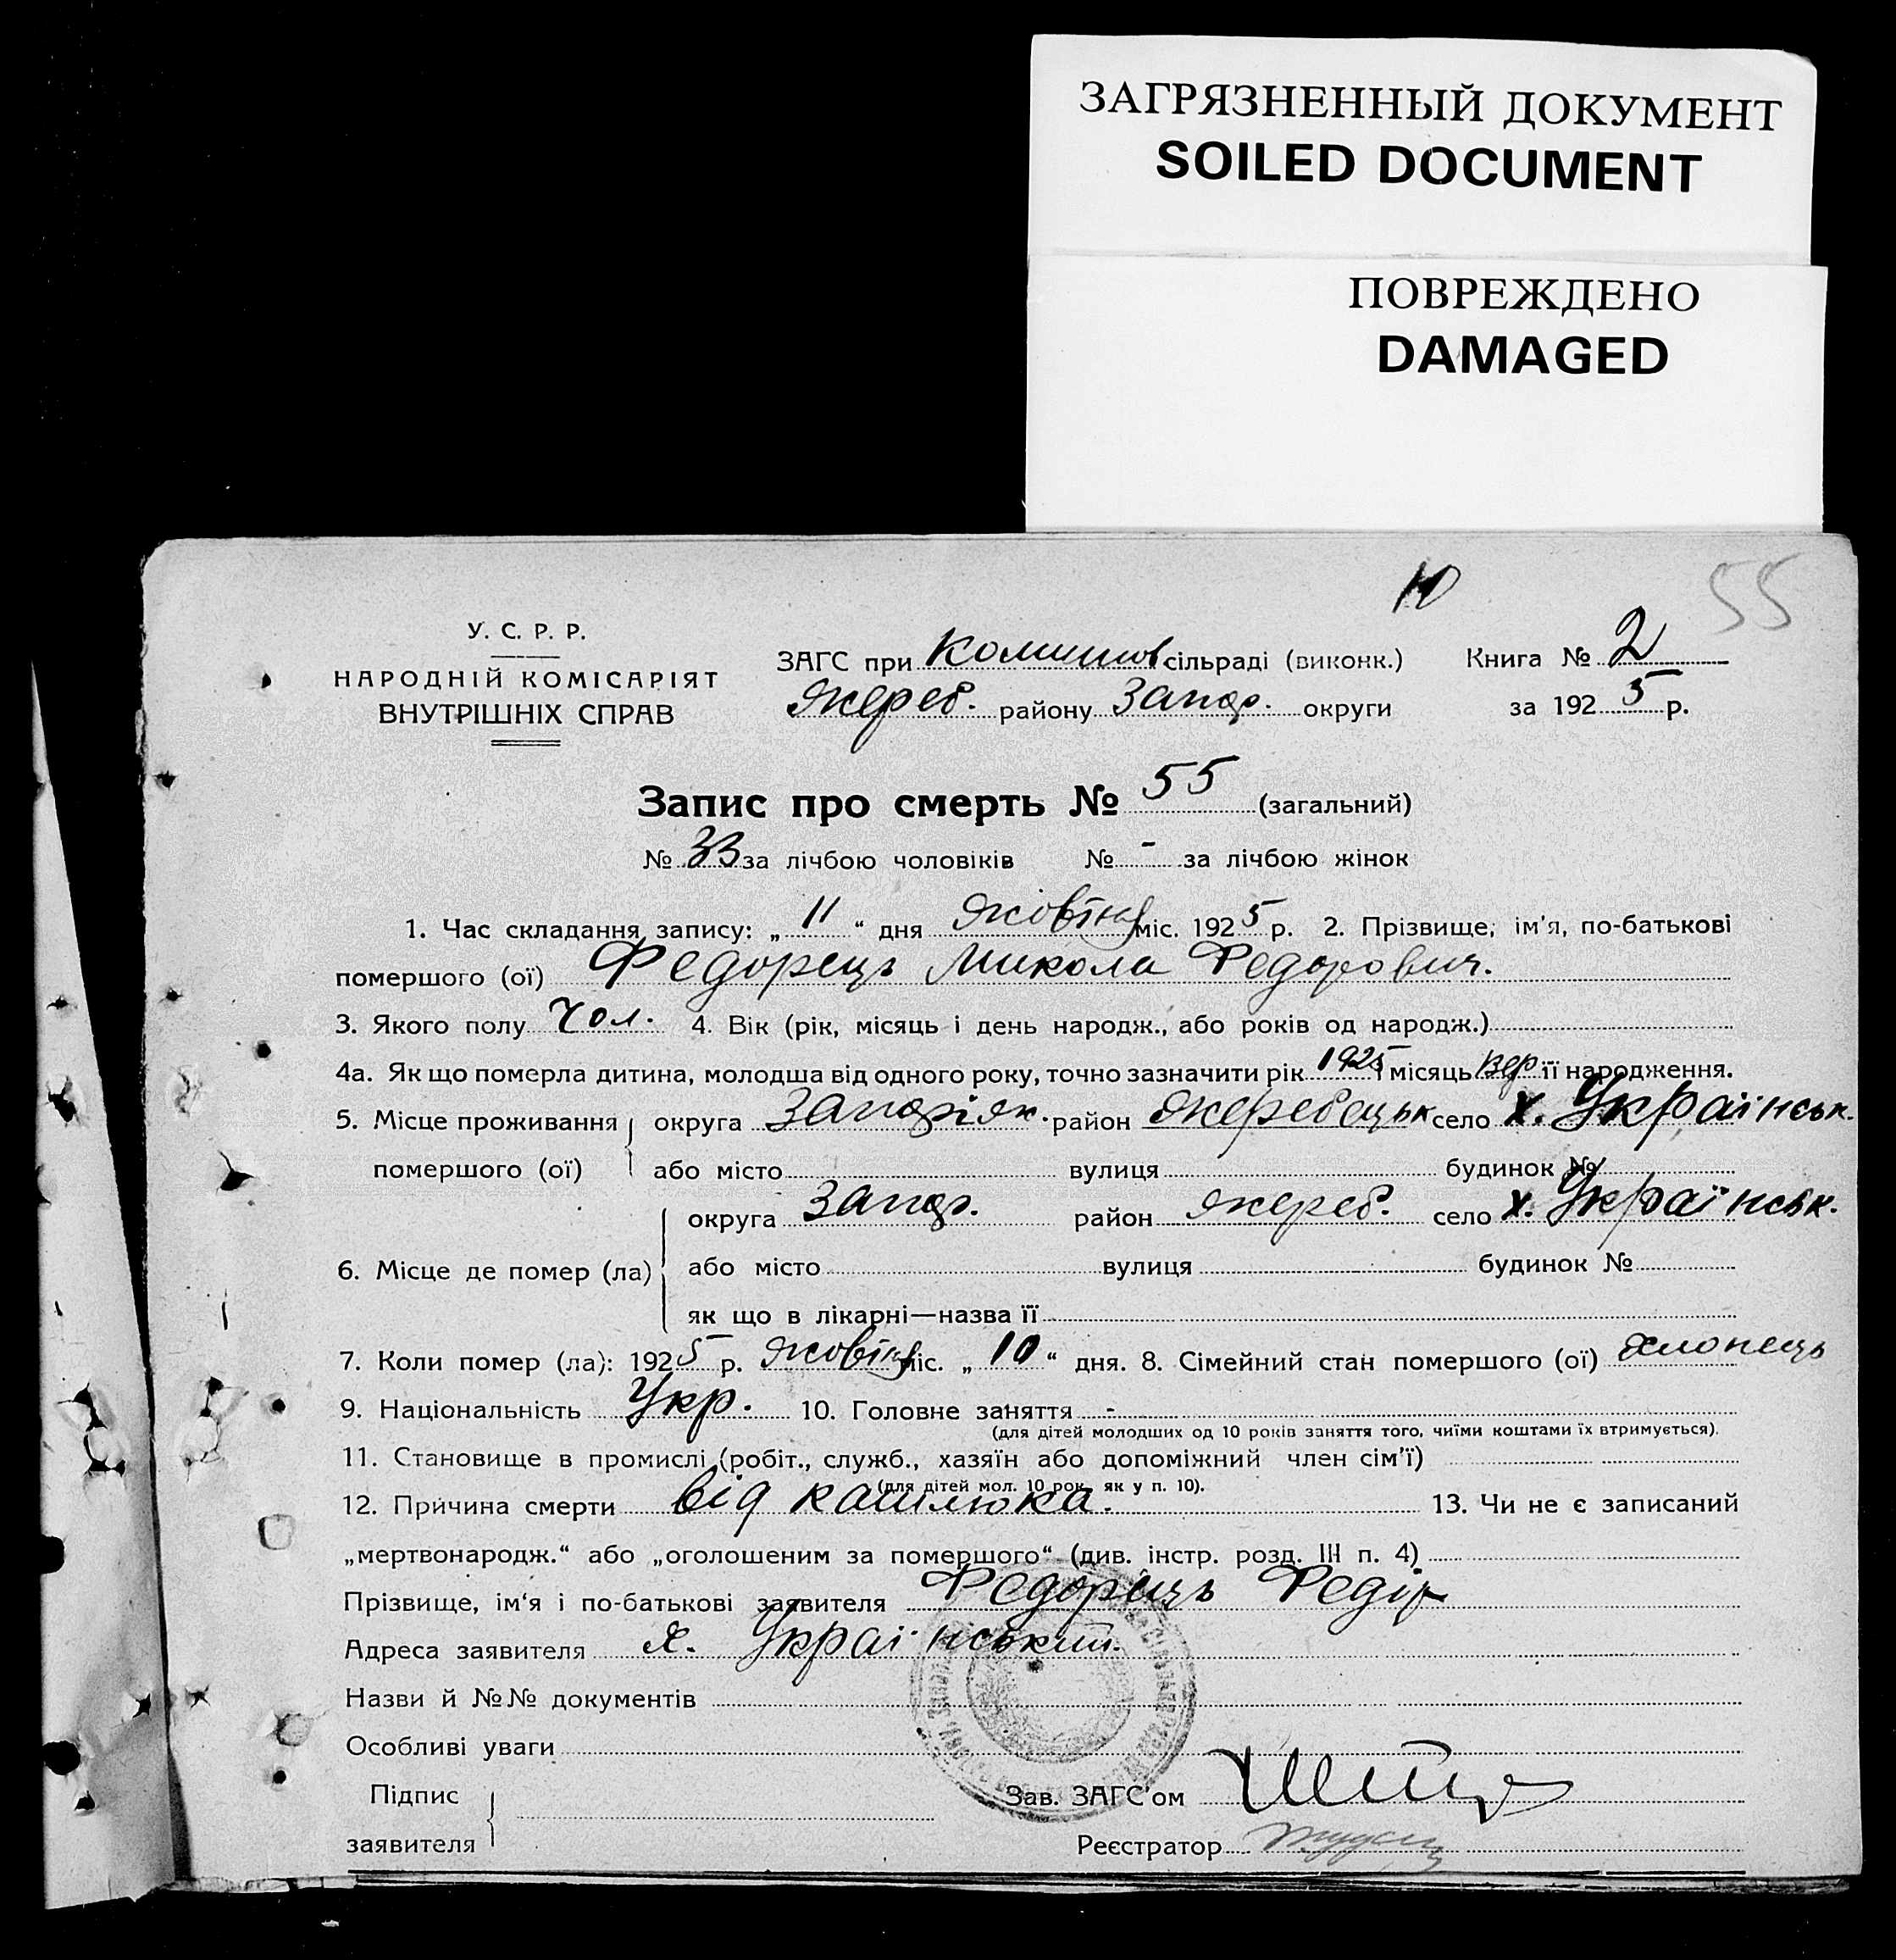 ЗАГРЯЗНЕННЫЙ ДОКУМЕНТ
SOILED DOCUMENT
ПОВРЕЖДЕНО
DAMAGED
10 55
У. С. Р. Р.
НАРОДНІЙ КОМІСАРІЯТ
ВНУТРІШНІХ СПРАВ
ЗАГС при Комишов сільраді (виконк.) Книга № 2
Жереб. району Запор. округи за 1925 р.
Запис про смерть № 55 (загальний)
№ 33 за лічбою чоловіків № - за лічбою жінок
1. Час складання запису: „11“ дня Жовтня міс. 1925 р. 2. Прізвище, ім'я, по-батькові
помершого (ої) Федорець Микола Федорович.
3. Якого полу Чол. 4. Вік (рік, місяць і день народж., або років од народж.)
4а. Як що померла дитина, молодша від одного року, точно зазначити рік 1925 і місяць вер її народження.
5. Місце проживання округа Запоріж. район Жеребецьк село х. Українськ.
помершого (ої) або місто вулиця будинок №
округа Запор. район Жереб. село х. Українськ.
6. Місце де помер (ла) або місто вулиця будинок №
як що в лікарні—назва її
7. Коли помер (ла): 1925 р. Жовтня міс. „10“ дня. 8. Сімейний стан помершого (ої) хлопець
9. Національність Укр. 10. Головне заняття -
(для дітей молодших од 10 років заняття того, чиїми коштами їх втримується).
11. Становище в промислі (робіт., служб., хазяїн або допоміжний член сім'ї)
(для дітей мол. 10 рок. як у п. 10).
12. Причина смерти від кашлюка. 13. Чи не є записаний
„мертвонародж.“ або „оголошеним за помершого“ (див. інстр. розд. III п. 4)
Прізвище, ім'я і по-батькові заявителя Федорець Федір
Адреса заявителя х. Український.
Назви й №№ документів
Особливі уваги
Підпис
заявителя
Зав. ЗАГС'ом
Реєстратор